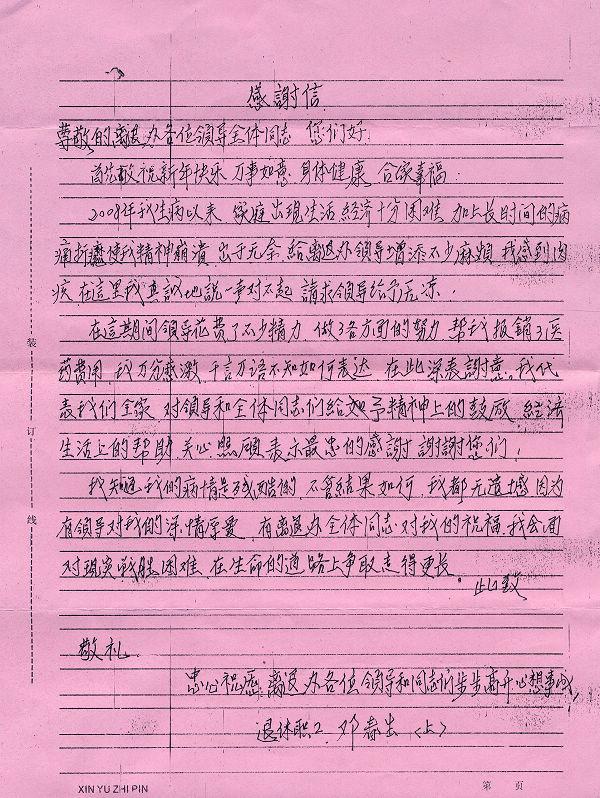 感謝信
尊敬的離退办各位領导全体同志 您们好
首先敬祝新年快乐 万事如意 身体健康 合家幸福
2008年我生病以来 家庭出現生活 经济十分困难 加上長时间的病
痛折磨使我精神崩潰 出于无奈 給離退办領导增添不少麻煩 我感到内
疚 在這里我真誠地說一声对不起 請求領导給予无凉
在這期间領导花费了不少精力 做了各方面的努力 帮我报銷了医
药費用 我万分感激 千言万语不知如何表达 在此深表謝意。我代
表我们全家 对領导和全体同志们给予精神上的鼓励 经济
生活上的帮助 关心照顾表示最忠的感謝 謝謝您们！
我知道我的病情是残酷的 不管結果如何 我都无遗憾 因为
有領导对我的深情厚爱 有离退办全体同志对我的祝福 我会面
对現实战胜困难 在生命的道路上争取走得更長。
此致
敬礼
忠心祝愿 离退办各位領导和同志们步步高升心想事成
退休职工 邓春生〈上〉
装
订
线
XIN YU ZHI PIN
第 页